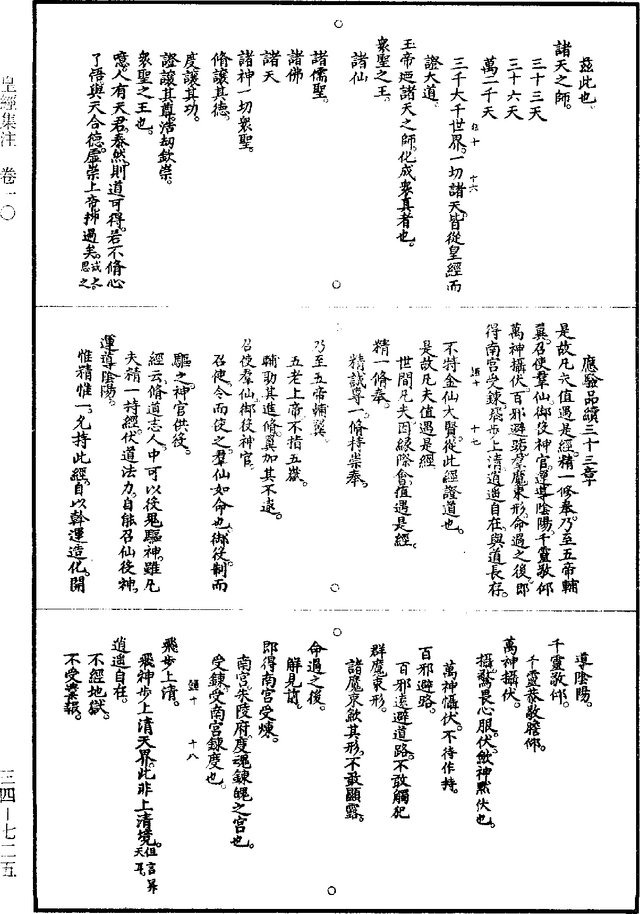 茲此也。
諸天之師。
三十三天
三十六天
萬二千天
三千大千世界。一切諸天。皆從皇經而
證大道。
玉帝廼諸天之師。化成衆真者也。
衆聖之王。
諸仙
諸儒聖。
諸佛
諸天
諸神一切衆聖。
脩讓其德。
度讓其功。
證讓其尊。浩劫欽崇。
衆聖之王也。
噫。人有天君。泰然。則道可得。若不脩心
了悟。與天合德。虛崇上帝。拚過矣。戒之思之
應驗品續三十二章
是故凡夫值遇是經。精一修奉。乃至五帝輔
翼。召使羣仙。御役神官。運導陰陽。千靈敬仰
萬神攝伏。百邪避路。羣魔束形。命過之後。即
得南宮受鍊。飛步上清。逍遥自在。與道長存。
通十 十七
不特金仙大賢。從此經證道也。
是故凡夫值遇是經
世間凡夫。因緣際會。值遇是經。
精一脩奉。
精誠專一。脩持崇奉。
乃至五帝輔翼。
五老上帝。不指五嶽。
輔助其進脩。翼加其不逮。
召使羣仙。御役神官。
召使。令而使之。羣仙如命也。御役。制而
驅之。神官供役。
經云。脩道志人。中可以役鬼驅神。雖凡
夫精一持經。伏道法力。自能召仙役神。
運導陰陽。
惟精惟一。允持此經。自以斡運造化。開
導陰陽。
千靈敬仰。
千靈恭敬瞻仰。
萬神攝伏。
攝。驚畏心服。伏。斂神默伏也。
萬神懾伏。不待作持。
百邪避路。
百邪遠避道路。不敢觸犯
群魔束形。
諸魔束歛其形。不敢顯露。
命過之後。
解見前。
即得南宮受煉。
南宮朱陵府。度魂鍊魄之宮也。
受鍊。受南宮鍊度也。
通十 十八
飛步上清。
飛神步上清天界。此非上清境。但言昇天耳。
逍遥自在。
不經地獄。
不受業報。
皇經集注 卷一〇
三四—七二五